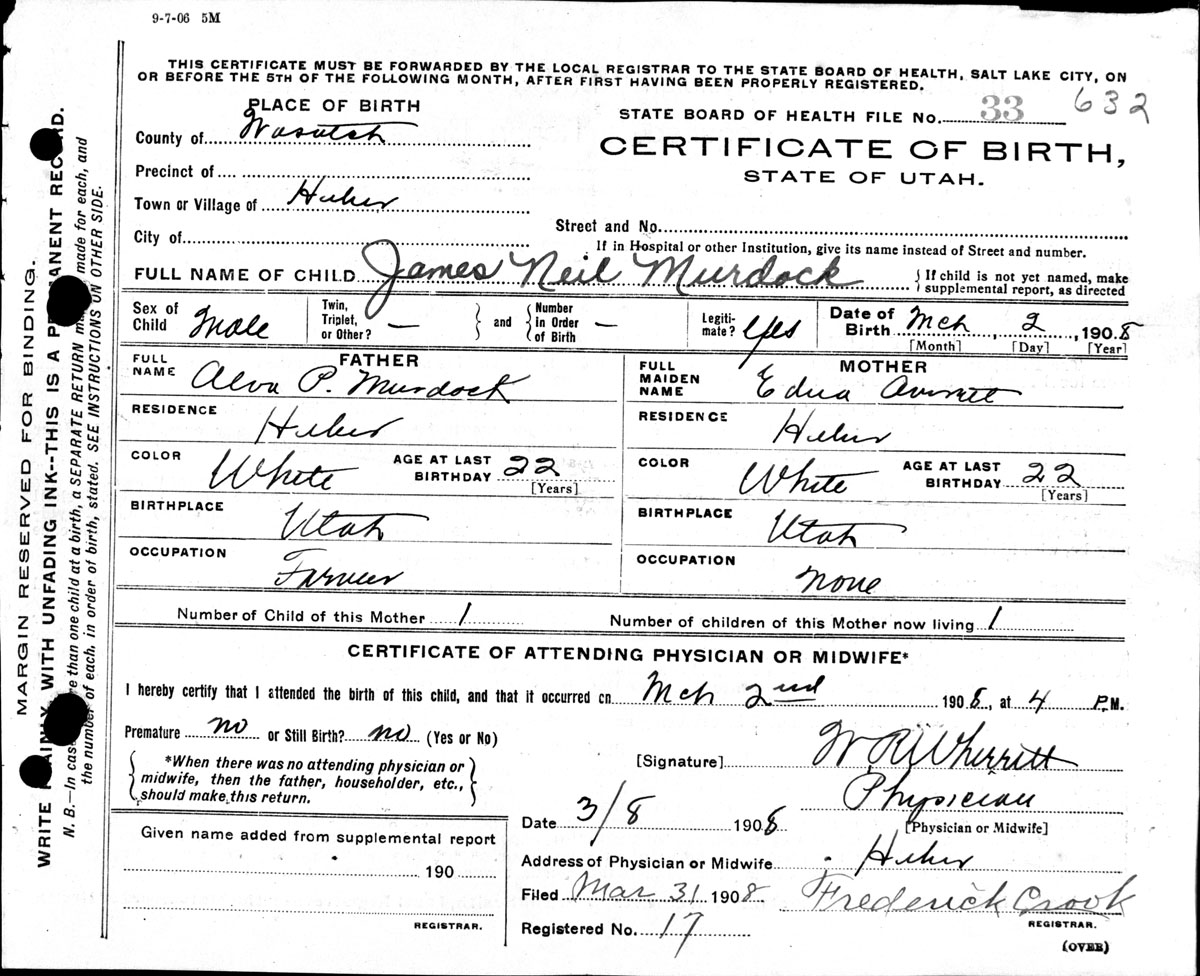 9-7-06 5M
THIS CERTIFICATE MUST BE FORWARDED BY THE LOCAL REGISTRAR TO THE STATE BOARD OF HEALTH, SALT LAKE CITY, ON
OR BEFORE THE 5TH OF THE FOLLOWING MONTH, AFTER FIRST HAVING BEEN PROPERLY REGISTERED.
PLACE OF BIRTH
STATE BOARD OF HEALTH FILE No. 33 632
County of Wasatch
CERTIFICATE OF BIRTH,
STATE OF UTAH.
Precinct of
Town or Village of Heber
Street and No.
City of
If in Hospital or other Institution, give its name instead of Street and number.
FULL NAME OF CHILD James Neil Murdock { If child is not yet named, make
supplemental report, as directed
Sex of Child Male
Twin, Triplet, or Other? — } and { Number in Order of Birth —
Legitimate? Yes
Date of Birth Mch 2, 1908
[Month] [Day] [Year]
FATHER
FULL NAME Alva P. Murdock
RESIDENCE Heber
COLOR White AGE AT LAST BIRTHDAY 22
[Years]
BIRTHPLACE Utah
OCCUPATION Farmer
MOTHER
FULL MAIDEN NAME Edna Averett
RESIDENCE Heber
COLOR White AGE AT LAST BIRTHDAY 22
[Years]
BIRTHPLACE Utah
OCCUPATION None
Number of Child of this Mother 1 Number of children of this Mother now living 1
CERTIFICATE OF ATTENDING PHYSICIAN OR MIDWIFE*
I hereby certify that I attended the birth of this child, and that it occurred on Mch 2nd 1908, at 4 P.M.
Premature no or Still Birth? no (Yes or No)
{ *When there was no attending physician or
midwife, then the father, householder, etc.,
should make this return. }
[Signature] W R Wherritt
Physician
[Physician or Midwife]
Date 3/8 1908
Given name added from supplemental report
190
REGISTRAR.
Address of Physician or Midwife Heber
Filed Mar 31 1908 Frederick Crook
REGISTRAR.
Registered No. 17
(OVER)
MARGIN RESERVED FOR BINDING.
WRITE PLAINLY WITH UNFADING INK--THIS IS A PERMANENT RECORD.
N. B.—In case more than one child at a birth, a SEPARATE RETURN must be made for each, and
the number of each, in order of birth, stated. SEE INSTRUCTIONS ON OTHER SIDE.